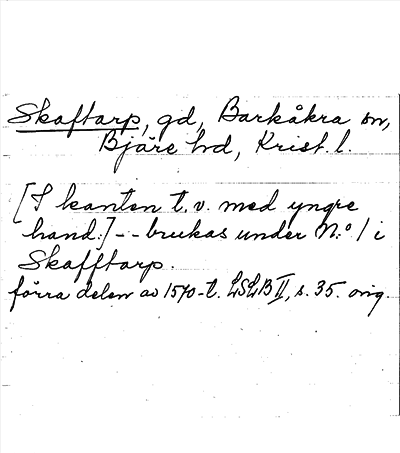 Skaftarp, gd, Barkåkra sn,
Bjäre hd, Krist. l.
[I kanten t. v. med yngre
hand:] - - brukas under N:o 1 i
Skafftarp.
förra delen av 1570-t. LSLB II, s. 35. orig.